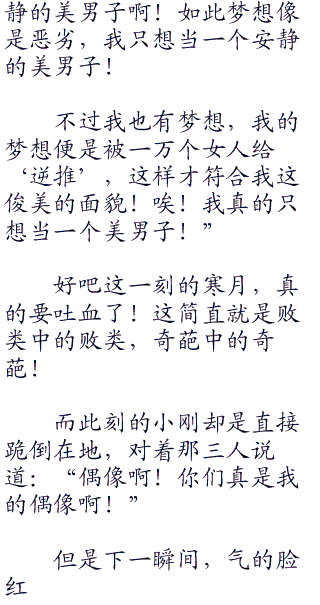 静的美男子啊！如此梦想像
是恶劣，我只想当一个安静
的美男子！
不过我也有梦想，我的
梦想便是被一万个女人给
‘逆推’，这样才符合我这
俊美的面貌！唉！我真的只
想当一个美男子！”
好吧这一刻的寒月，真
的要吐血了！这简直就是败
类中的败类，奇葩中的奇
葩！
而此刻的小刚却是直接
跪倒在地，对着那三人说
道：“偶像啊！你们真是我
的偶像啊！”
但是下一瞬间，气的脸
红